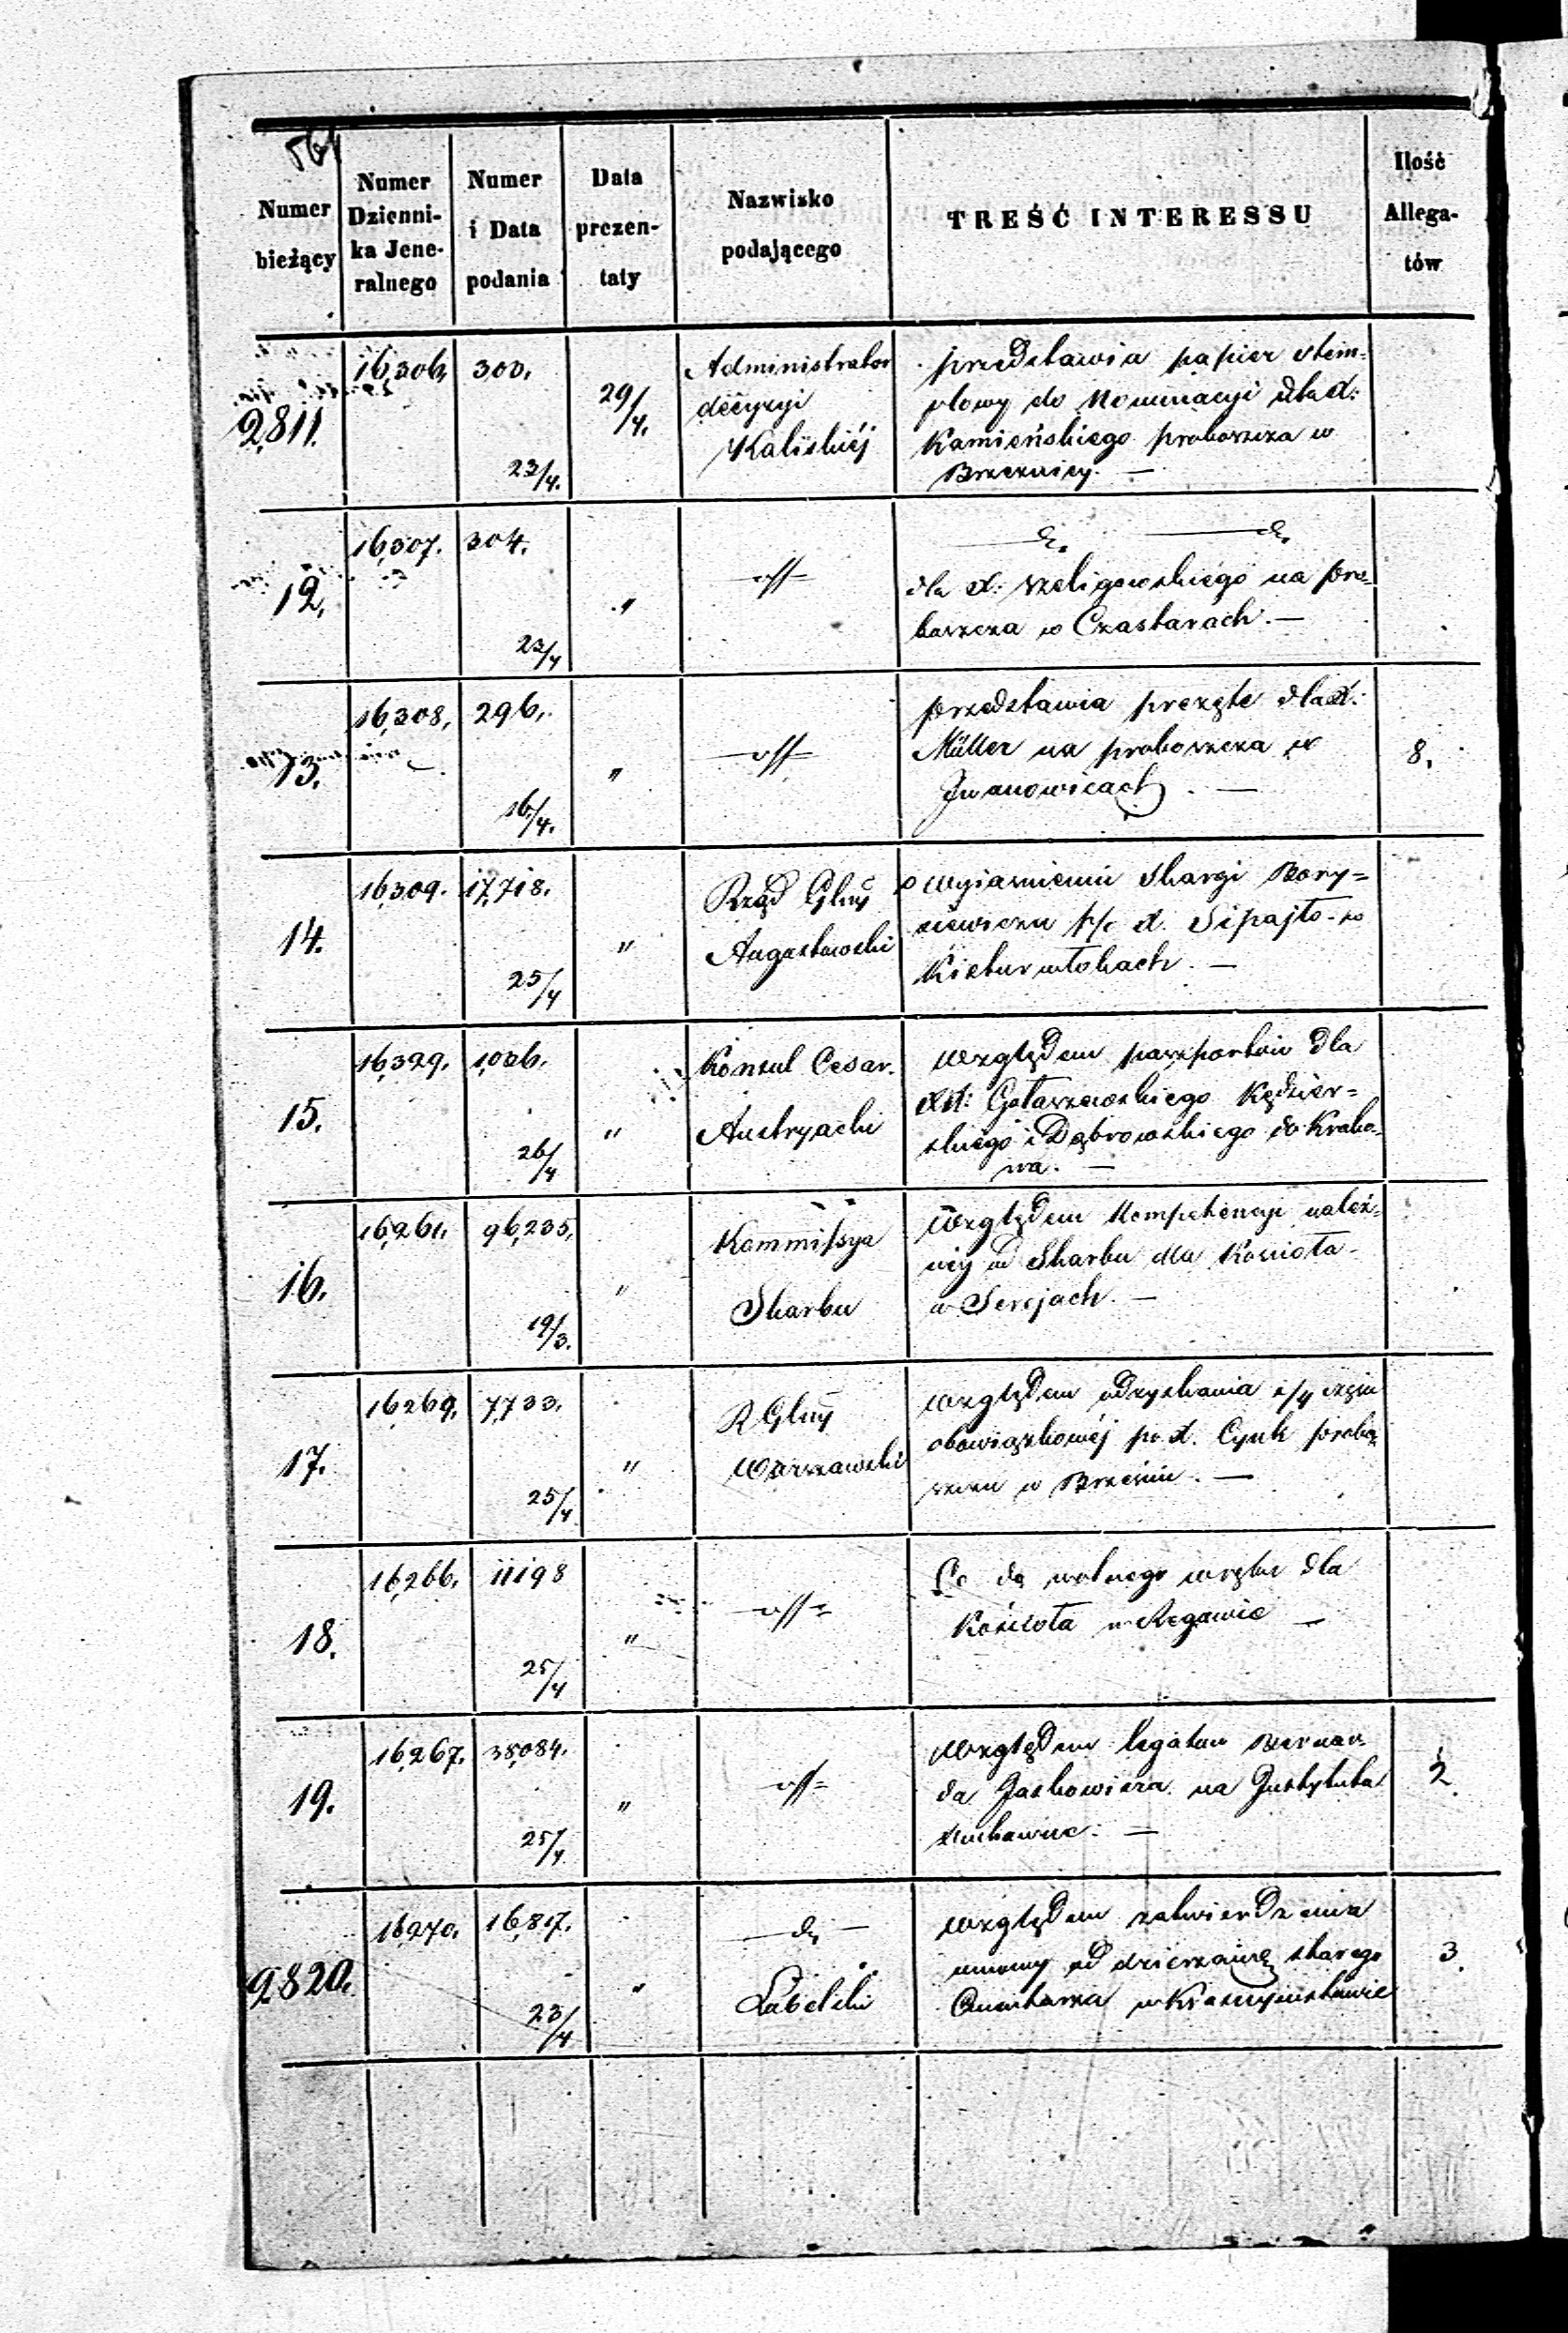 561
Numer bieżący | Numer Dzienni-ka Jene-ralnego | Numer i Data podania | Data prezen-taty | Nazwisko podającego | TREŚĆ INTERESSU | Ilość Allega-tów
2,811. | 16,306, | 303, 23/4. | 29/4. | Administrator | przedstawia papier stem-
dëcyzyi | plowy do Nominacyi dla X:
Kaliskiéj | Kamieńskiego proboszcza w
Brzeznicy. —
12, | 16,307. | 304. 23/4 | " | —
dla X: Szeligowskiego na pro-
boszcza w Czastarach. —
13. | 16,308, | 296, 16/4. | " | przedstawia prezętę dla X:
Müller na proboszcza w | 8.
Iwanowicach. —
14. | 16,309. | 17,718. 25/4 | " | Rząd Glny | o wyjaśnieniu skargi Bory-
Augustowski | sewicza p/c X. Sipajło w
—
15. | 16,329. | 1,036. 26/4 | " | Konsul Cesar. | względem paszportów dla
Austryacki | XX: Gołaszewskiego Kędzier-
skiego i Dąbrowskiego do Krako-
wa. —
16. | 16,261. | 96,235, 19/3. | " | Kommissya | względem Kompetencyi należ-
Skarbu | néj od Skarbu dla Kościoła
w Serejach. —
17. | 16,269, | 7,733. 25/4 | " | R Glny | względem odzyskania
Warszawski | obowiązkowéj po X. Cynk probo-
szczu w Brzeźnie. —
18. | 16,266, | 11198 25/4 | " | Co do wolnego wrębu dla
Kościoła w Regowie —
19. | 16,267. | 38,084. 25/4 | " | względem legatu Bernar-
da Jaskowicza na Instytuta | 2
Duchowne: —
2,820. | 16,270. | 16,817. 23/4 | " | — do — | względem zatwierdzenia
Lubelski | umowy od dzierzawę starego | 3
Cmentarza w Krasnymstawie